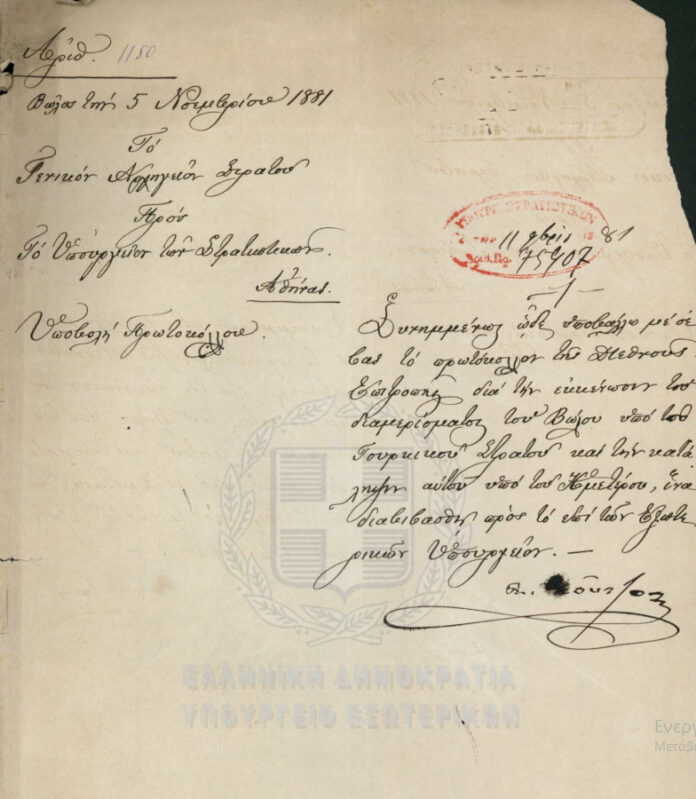 Αριθ. 1150
Βώλος την 5 Νοεμβρίου 1881
Τό
Γενικόν Αρχηγείον Στρατού
Πρός
Τό Υπουργείον των Στρατιωτικών.
Αθήνας.
Υποβολή Πρωτοκόλλου.
ΣΤΡΑΤΙΩΤΙΚΩΝ
11 9βρίου 81
Αριθ. Πρ. 75907
Συνημμένως ώδε υποβάλλω μέ σέ
βας τό πρωτόκολλον της Διεθνούς
Επιτροπής διά την εκκένωσιν του
διαμερίσματος του Βώλου υπό του
Τουρκικού Στρατού και την κατά
ληψιν αυτού υπό του Ημετέρου, ίνα
διαβιβασθή πρός τό επί των Εξωτε
ρικών Υπουργείον. —
ΕΛΛΗΝΙΚΗ ΔΗΜΟΚΡΑΤΙΑ
ΥΠΟΥΡΓΕΙΟ ΕΞΩΤΕΡΙΚΩΝ
Ενεργ
Μετάβα